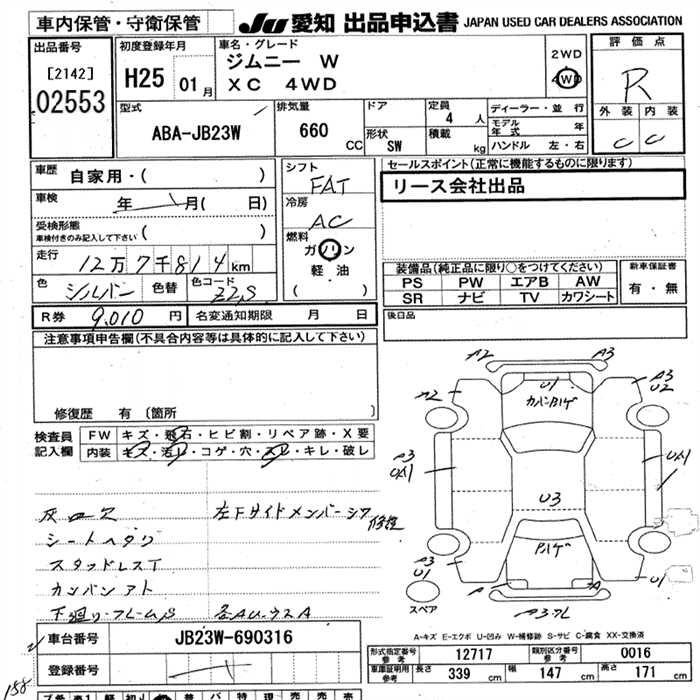 車内保管・守衛保管
JU 愛知 出品申込書 JAPAN USED CAR DEALERS ASSOCIATION
出品番号
[2142]
02553
初度登録年月
H25 01月
車名・グレード
ジムニー W
XC 4WD
2WD
4WD
評価点
R
外装 内装
C C
型式
ABA-JB23W
排気量
660 CC
ドア
形状 SW
定員 4 人
積載 kg
ディーラー・並行
モデル年式 年
ハンドル 左・右
車歴 自家用・( )
車検 年 月( 日)
受検形態
車検付きのみ記入して下さい ( )
走行 12万7千814km
色 シルバー 色替 色コード Z2S
シフト FAT
冷房 AC
燃料
ガソリン
軽油
( )
セールスポイント(正常に機能するものに限ります)
リース会社出品
装備品(純正品に限り○をつけてください)
PS PW エアB AW
SR ナビ TV カワシート
新車保証書
有・無
後日品
R券 9,010円 名変通知期限 月 日
注意事項申告欄(不具合内容等は具体的に記入して下さい)
修復歴 有〔箇所 〕
検査員記入欄
FW キズ・飛石・ヒビ割・リペア跡・X要
内装 キズ・汚レ・コゲ・穴・スレ・キレ・破レ
左下サイドメンバーシワ修理
シートヘタリ
スタッドレスT
カンバンアト
下廻り・フレームS
A2 A3
A2 U1 A3 U2
カバーハゲ
A3 UA1 UA1
U3
A3 U1 Pハゲ U1
A A
スペア
A-キズ E-エクボ U-凹み W-補修跡 S-サビ C-腐食 XX-交換済
車台番号 JB23W-690316
登録番号
形式指定番号 参考 12717 類別区分番号 参考 0016
車庫証明用 参考 長さ 339 cm 幅 147 cm 高さ 171 cm